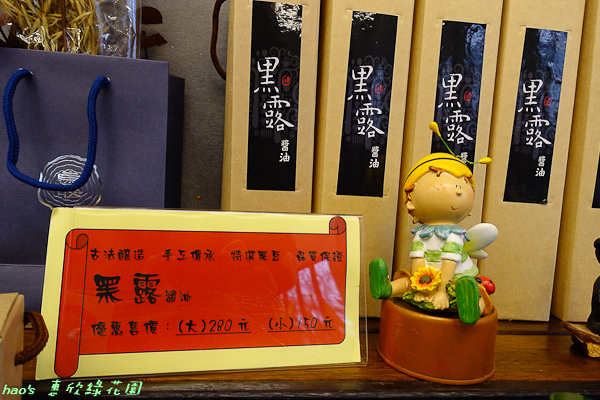 黑露
醬油
黑露
醬油
黑露
醬油
黑露
醬油
古法釀造 手工傳承 特選黑豆 品質保證
黑露醬油
優惠售價：(大)280元 (小)150元
hao's 惠欣綠花園